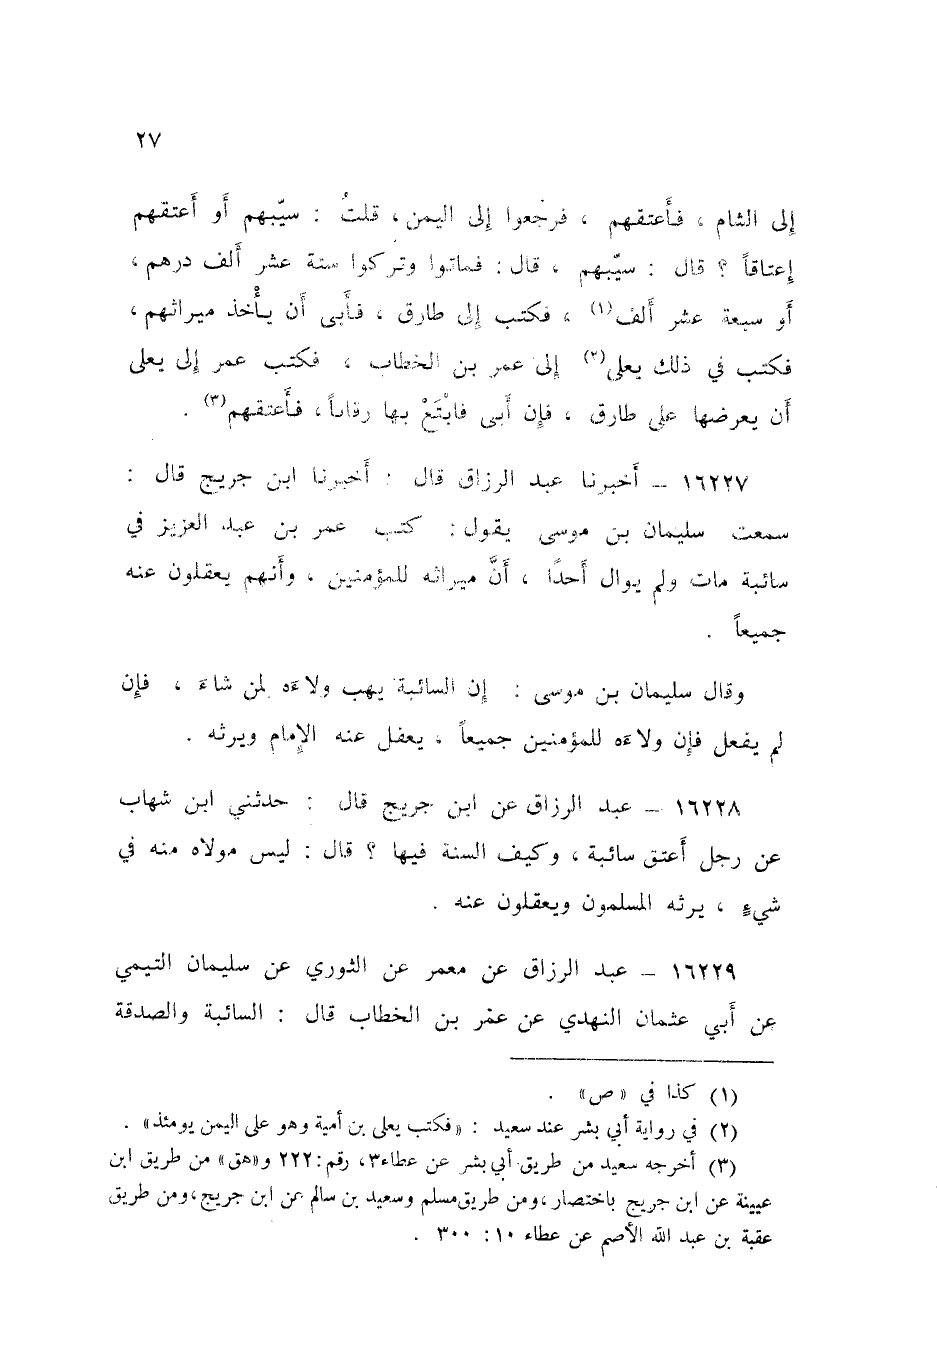 ٢٧
إلى الشام ، فأعتقهم ، فرجعوا إلى اليمن، قلتُ : سيّبهم أو أعتقهم
إعتاقاً ؟ قال : سيّبهم ، قال : فماتوا وتركوا ستة عشر ألف درهم ،
أو سبعة عشر ألف(١) ، فكتب إلى طارق ، فأبى أن يأخذ ميراثهم ،
فكتب في ذلك يعلى(٢) إلى عمر بن الخطاب ، فكتب عمر إلى يعلى
أن يعرضها على طارق ، فإن أبى فابْتَعْ بها رقاباً ، فأعتقهم(٣) .
١٦٢٢٧ – أخبرنا عبد الرزاق قال : أخبرنا ابن جريج قال :
سمعت سليمان بن موسى يقول : كتب عمر بن عبد العزيز في
سائبة مات ولم يوال أحدًا ، أنَّ ميراثه للمؤمنين ، وأنهم يعقلون عنه
جميعاً .
وقال سليمان بن موسى : إن السائبة يهب ولاءه لمن شاءَ ، فإن
لم يفعل فإن ولاءه للمؤمنين جميعاً ، يعقل عنه الإمام ويرثه .
١٦٢٢٨ – عبد الرزاق عن ابن جريج قال : حدثني ابن شهاب
عن رجل أعتق سائبة ، وكيف السنة فيها ؟ قال : ليس مولاه منه في
شيءٍ ، يرثه المسلمون ويعقلون عنه .
١٦٢٢٩ – عبد الرزاق عن معمر عن الثوري عن سليمان التيمي
عن أبي عثمان النهدي عن عمر بن الخطاب قال : السائبة والصدقة
(١) كذا في « ص» .
(٢) في رواية أبي بشر عند سعيد : «فكتب يعلى بن أمية وهو على اليمن يومئذ» .
(٣) أخرجه سعيد من طريق أبي بشر عن عطاء٣، رقم: ٢٢٢ و«هق» من طريق ابن
عيينة عن ابن جريج باختصار ،ومن طريق مسلم وسعيد بن سالم عن ابن جريج ،ومن طريق
عقبة بن عبد الله الأصم عن عطاء ١٠: ٣٠٠ .